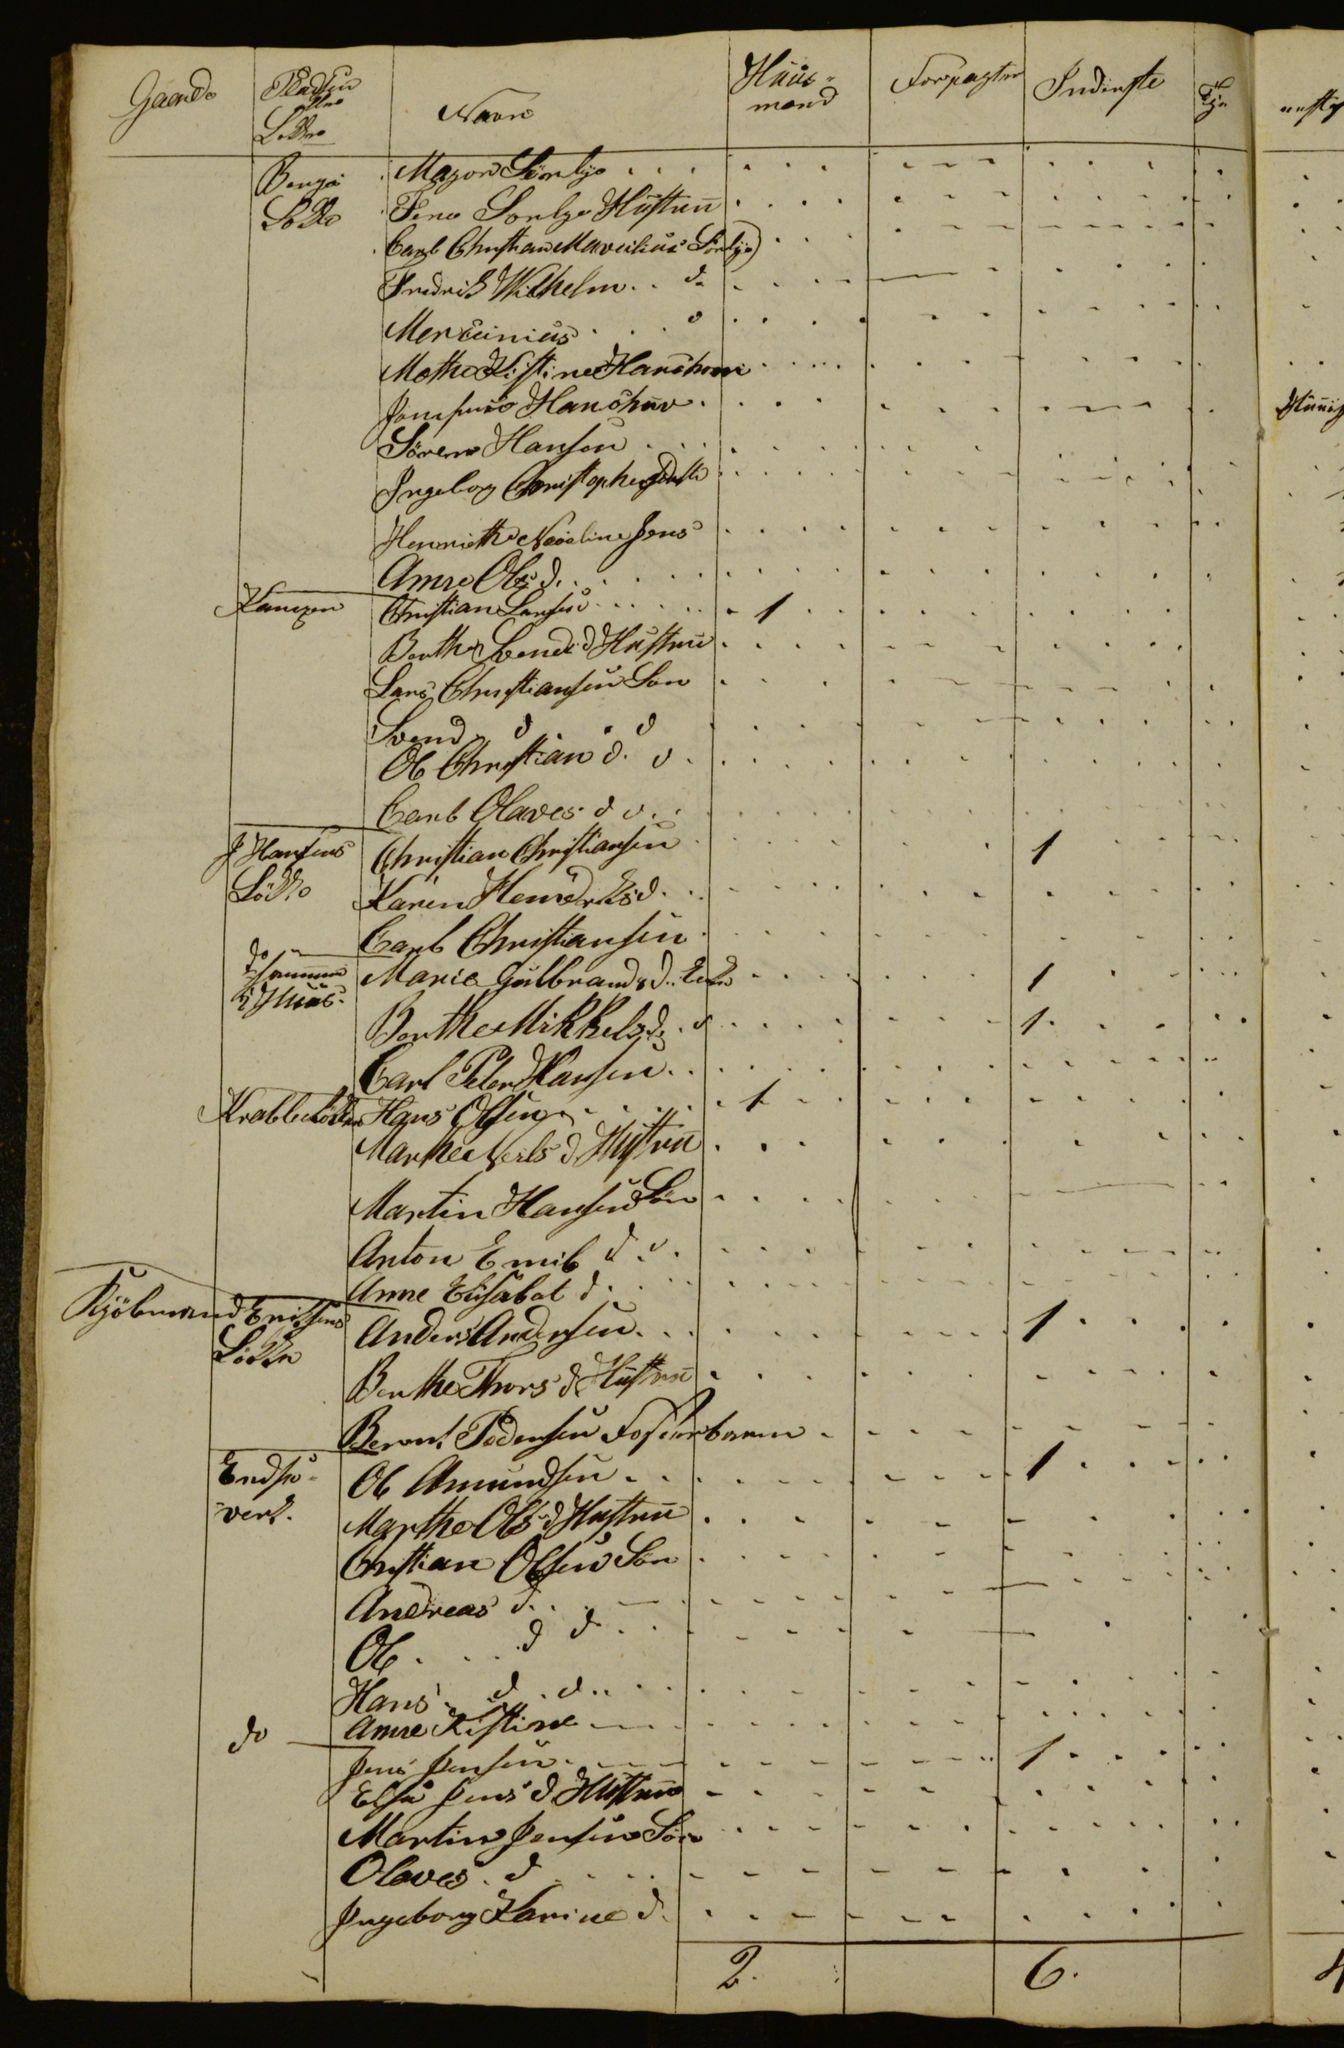 Gaard Pladsen eller Løkke Navn Huus-mand Forpagter Inderste
Berga Major Sörlye
Løkke Sorlye Hustru
Carl Christian Mavelius Sörlye
Fredrik Wilhelm d
Mercinius d
Mathe Kistine Hanshun
Hanshuv
Sören Hansen
Ingeborg Christophersdatter
Henriethe Jens
Anne Ols d.
Kampen Christian Larsen 1
Berthe Svends d Hustru
Lars Christiansen Søn
Svend d d
Ole Christian d. d
Carl Olaves d d
J Hansens Christian Christiansen 1
Løkke Karen Henderks d
Carl Christiansen
do Marie Gulbrands d. Enke 1
Huus Berthe Mikkels d. d 1
Carl Peter Hansen
Krabbeløkken Hans Olsen 1
Marthe Neils d Hustru
Martin Hansen Søn
Anton Emil d d
Anne Elisabet d
Kjöbmand Eriksens Anders Andersen 1
Løkke Berthe Thors d Hustru
Bernt Pedersen Fosterbarn
Endse- Ole Amundsen 1
verk. Marthe Ols d Hustru
Christian Olsen Søn
Andreas d
Ole d d
Hans d d
Anne Kistine
do Jens Jensen 1
Else Jens d Hustru
Martin Jensen Søn
Olaves d
Ingeborg Karine d.
2. 6.